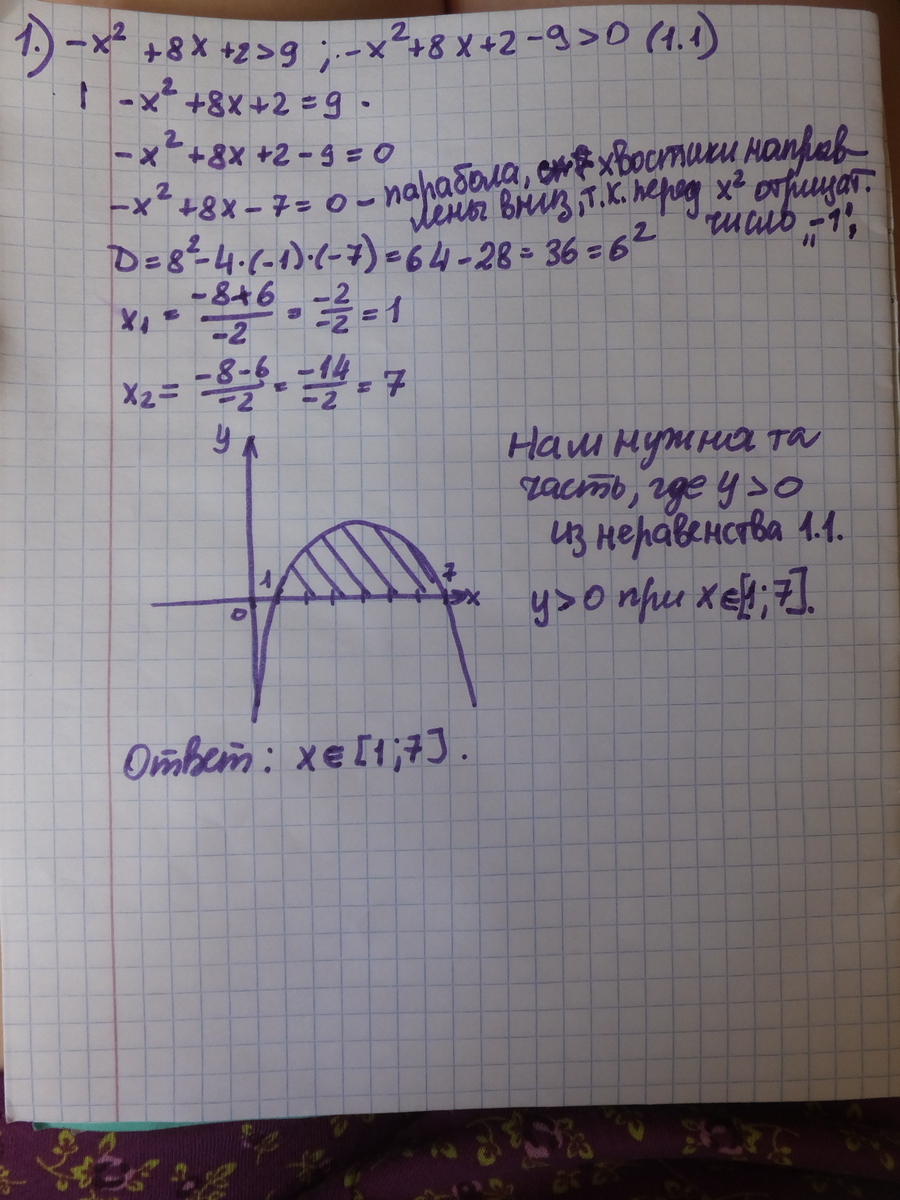 1.) -x² +8x+2>9 ; -x²+8x+2-9>0 (1.1)
-x²+8x+2=9.
-x²+8x+2-9=0
-x²+8x-7=0 - парабола, хвостики направ-
лены вниз, т.к. перед x² отрицат.
число „-1".
D=8²-4·(-1)·(-7)=64-28=36=6²
x₁ = \frac{-8+6}{-2} = \frac{-2}{-2} = 1
x₂ = \frac{-8-6}{-2} = \frac{-14}{-2} = 7
Нам нужна та
часть, где y>0
из неравенства 1.1.
y>0 при x∈[1;7].
y
1
7
0
x
Ответ: x∈[1;7].